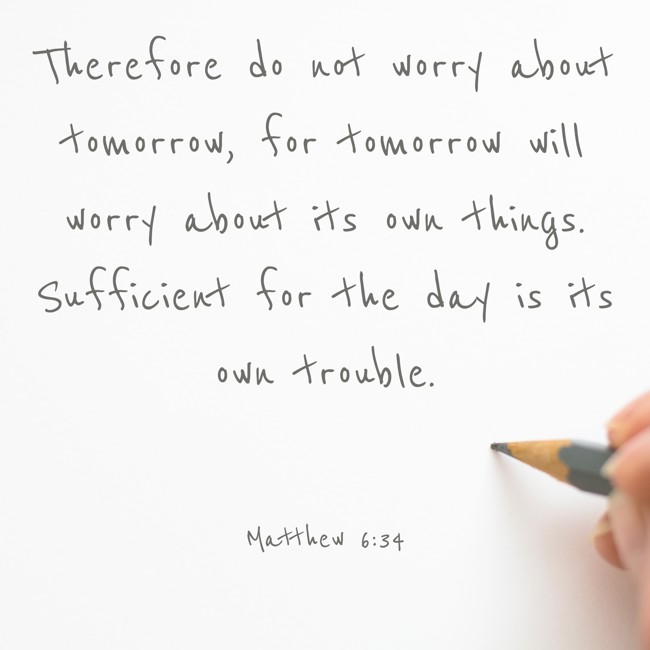 Therefore do not worry about
tomorrow, for tomorrow will
worry about its own things.
Sufficient for the day is its
own trouble.
Matthew 6:34